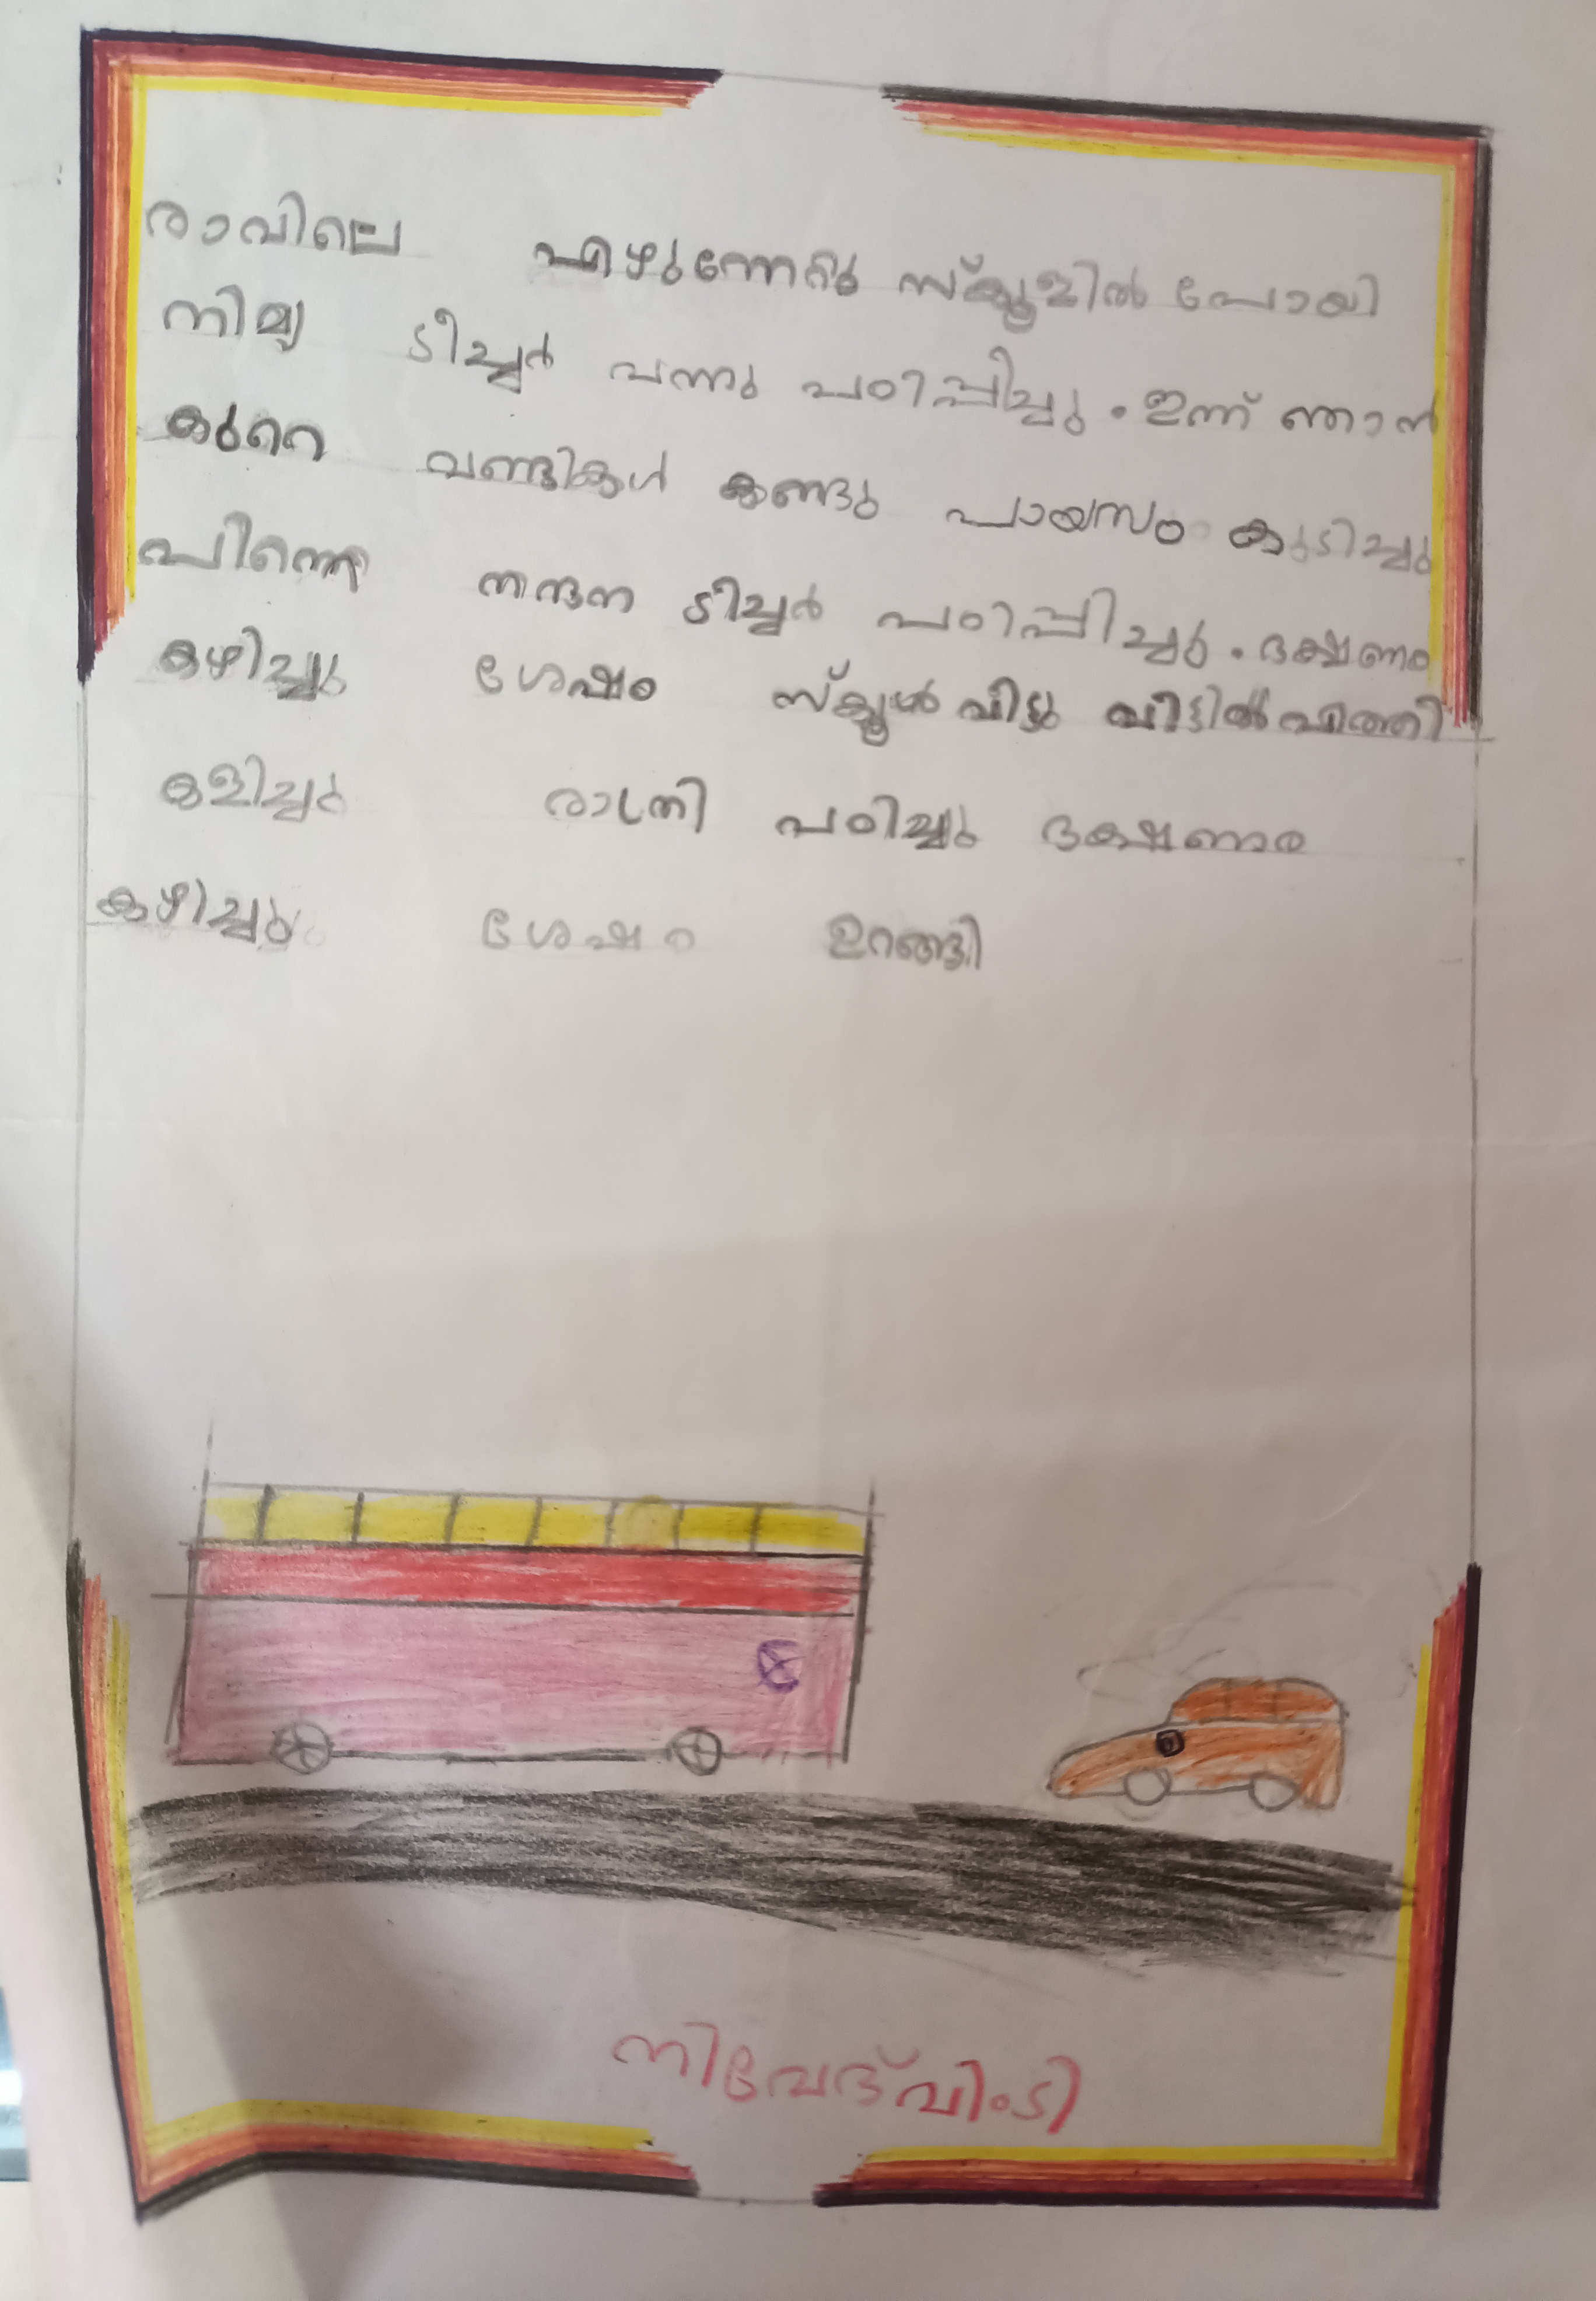 രാവിലെ എഴുന്നേറ്റു സ്ക്കൂളിൽ പോയി
നിമ്യ ടീച്ചർ വന്നു പഠിപ്പിച്ചു. ഇന്ന് ഞാൻ
കുറെ വണ്ടികൾ കണ്ടു പായസം കുടിച്ചു
പിന്നെ നന്ദന ടീച്ചർ പഠിപ്പിച്ചു. ദക്ഷണം
കഴിച്ചു ശേഷം സ്ക്കൂൾ വിട്ടു വീട്ടിൽ എത്തി
കളിച്ചു രാത്രി പഠിച്ചു ദക്ഷണം
കഴിച്ചു ശേഷം ഉറങ്ങി
നിവേദ് വി.ടി